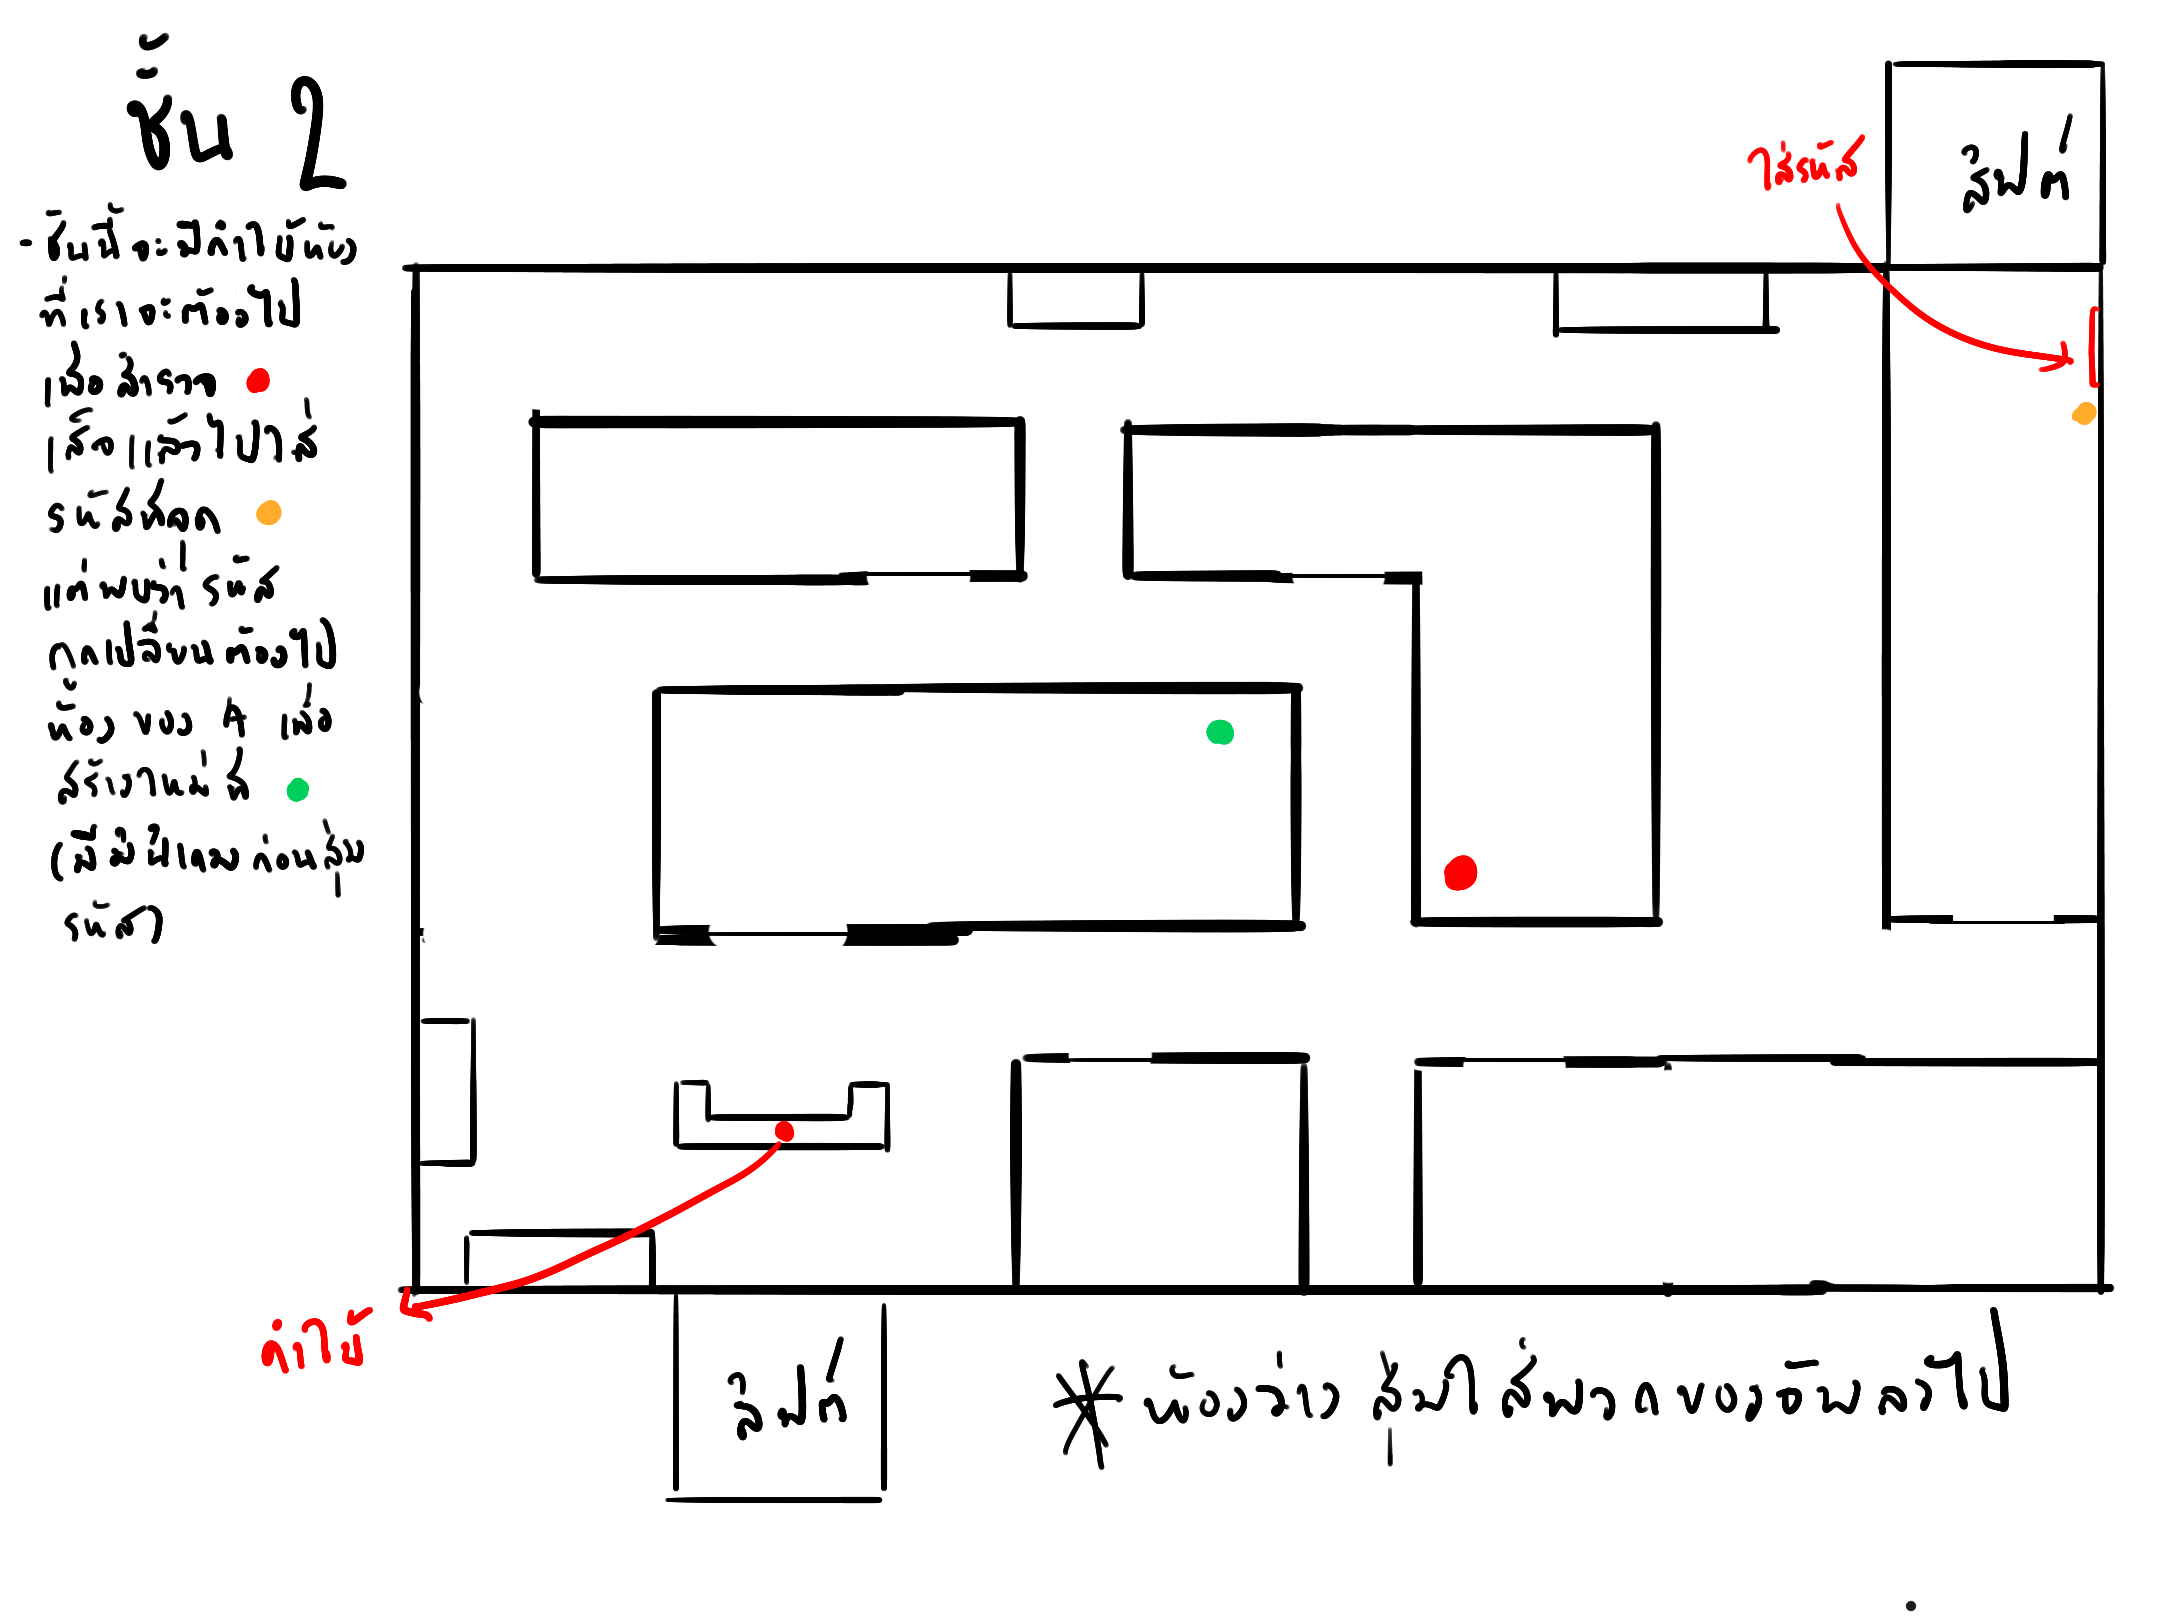 ชั้น 2
- ชั้นนี้จะมีคำใบ้ห้อง
ที่เราจะต้องไป
เพื่อสำรวจ
เสร็จแล้วไปใส่
รหัสที่จุด
แต่พบว่า รหัส
ถูกเปลี่ยนต้องไป
ห้อง ของ A เพื่อ
สร้างใหม่ ที่
(มีมินิเกมก่อนสุ่ม
รหัส)
ใส่รหัส
ลิฟต์
คำใบ้
ลิฟต์
* ห้องว่าง สุ่มใส่พวกของอัพลงไป